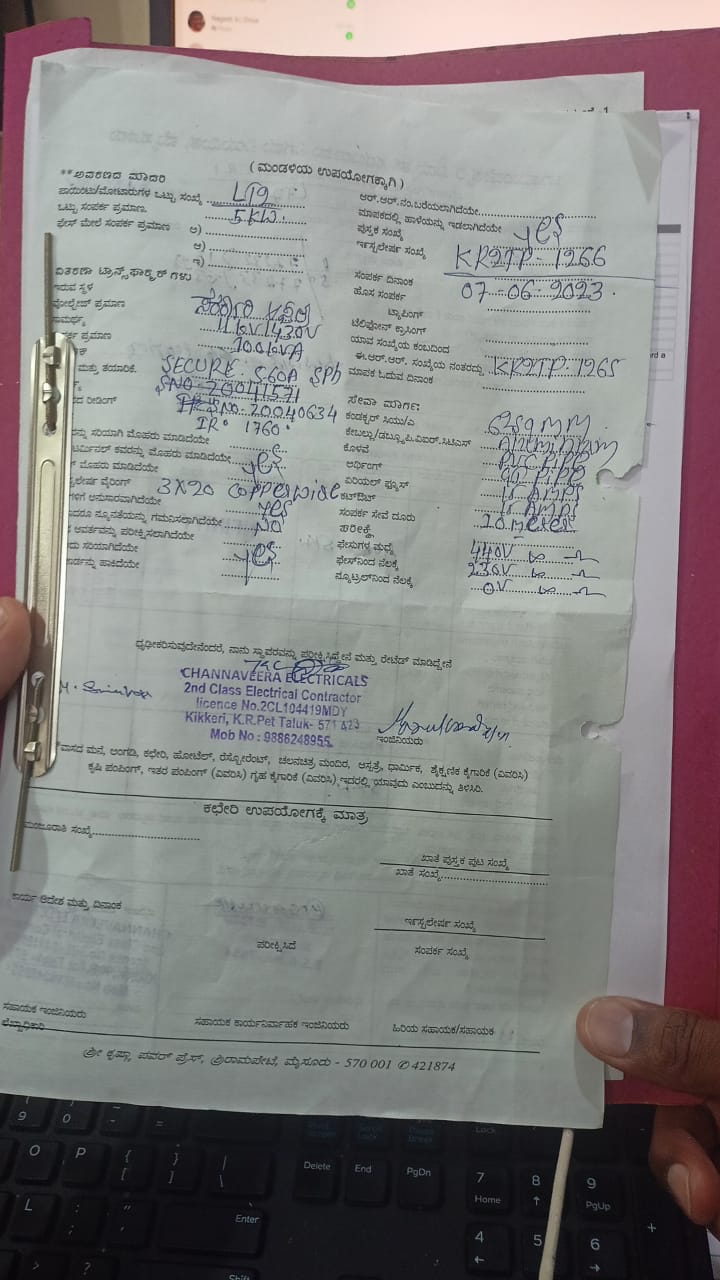 ( ಮಂಡಳಿಯ ಉಪಯೋಗಕ್ಕಾಗಿ )
**ಆವರಣದ ಮಾದರಿ
ಪಾಯಿಂಟು/ಮೋಟಾರುಗಳ ಒಟ್ಟು ಸಂಖ್ಯೆ LT2
ಒಟ್ಟು ಸಂಪರ್ಕ ಪ್ರಮಾಣ. 5KW.
ಫೇಸ್ ಮೇಲೆ ಸಂಪರ್ಕ ಪ್ರಮಾಣ ಅ)
ಆ)
ಇ)
ವಿತರಣಾ ಟ್ರಾನ್ಸ್‌ಫಾರ್ಮರ್‌ಗಳು
ಇರುವ ಸ್ಥಳ
ವೋಲ್ಟೇಜ್ ಪ್ರಮಾಣ 11KV/430V
100KVA
ಮತ್ತು ತಯಾರಿಕೆ. SECURE S60A 3Ph
SNO: 20041571
ರೀಡಿಂಗ್ SNO: 20040634
IR: 1760
ದನ್ನು ಸರಿಯಾಗಿ ಮೊಹರು ಮಾಡಿದೆಯೇ
ಟರ್ಮಿನಲ್ ಕವರನ್ನು ಮೊಹರು ಮಾಡಿದೆಯೇ yes
ಮೊಹರು ಮಾಡಿದೆಯೇ
ವೈರಿಂಗ್ 3X20 copper wire
ಅನುಸಾರವಾಗಿದೆಯೇ yes
ನ್ಯೂನತೆಯನ್ನು ಗಮನಿಸಲಾಗಿದೆಯೇ NO
ಆವರ್ತವನ್ನು ಪರೀಕ್ಷಿಸಲಾಗಿದೆಯೇ
ಸರಿಯಾಗಿದೆಯೇ yes
ಹಾಕಿದೆಯೇ
ಆರ್.ಆರ್.ನಂ.ಬರೆಯಲಾಗಿದೆಯೇ
ಮಾಪಕದಲ್ಲಿ ಹಾಳೆಯನ್ನು ಇಡಲಾಗಿದೆಯೇ yes
ಪುಸ್ತಕ ಸಂಖ್ಯೆ
ಇನ್ಸ್ಟಲೇಷನ್ ಸಂಖ್ಯೆ KR2TP-1266
ಸಂಪರ್ಕ ದಿನಾಂಕ 07-06-2023
ಹೊಸ ಸಂಪರ್ಕ
ಟ್ಯಾಪಿಂಗ್
ಟೆಲಿಫೋನ್ ಕ್ರಾಸಿಂಗ್
ಯಾವ ಸಂಖ್ಯೆಯ ಕಂಬದಿಂದ
ಈ.ಆರ್.ಆರ್. ಸಂಖ್ಯೆಯ ನಂತರದ್ದು KR2TP-1265
ಮಾಪಕ ಓದುವ ದಿನಾಂಕ
ಸೇವಾ ಮಾರ್ಗ:
ಕಂಡಕ್ಟರ್ ಸಿಯು/ಎ
ಕೇಬಲ್ಲು/ಡಬ್ಲ್ಯೂ.ಪಿ.ಐಆರ್.ಸಿಟಿಎಸ್
ಕೊಳವೆ PVC PIPE
ಅರ್ಥಿಂಗ್ GI PIPE
ಏರಿಯಲ್ ಫ್ಯೂಸ್ 15 AMPS
ಕಟ್‌ಔಟ್ 15 AMPS
ಸಂಪರ್ಕ ಸೇವೆ ದೂರು 10 meter
ಪರೀಕ್ಷೆ
ಫೇಸುಗಳ ಮಧ್ಯೆ 440V
ಫೇಸ್‌ನಿಂದ ನೆಲಕ್ಕೆ 230V
ನ್ಯೂಟ್ರಲ್‌ನಿಂದ ನೆಲಕ್ಕೆ 0V
ಧೃಢೀಕರಿಸುವುದೇನೆಂದರೆ, ನಾನು ಸ್ಥಾವರವನ್ನು ಪರೀಕ್ಷಿಸಿದ್ದೇನೆ ಮತ್ತು ರೇಟೆಡ್ ಮಾಡಿದ್ದೇನೆ
CHANNAVEERA ELECTRICALS
2nd Class Electrical Contractor
licence No.2CL104419MDY
Kikkeri, K.R.Pet Taluk- 571 423
Mob No : 9886248955
ಇಂಜಿನಿಯರು
*ವಾಸದ ಮನೆ, ಅಂಗಡಿ, ಕಛೇರಿ, ಹೋಟೆಲ್, ರೆಸ್ಟೋರೆಂಟ್, ಚಲನಚಿತ್ರ ಮಂದಿರ, ಆಸ್ಪತ್ರೆ, ಧಾರ್ಮಿಕ, ಶೈಕ್ಷಣಿಕ ಕೈಗಾರಿಕೆ (ವಿವರಿಸಿ)
ಕೃಷಿ ಪಂಪಿಂಗ್, ಇತರ ಪಂಪಿಂಗ್ (ವಿವರಿಸಿ) ಗೃಹ ಕೈಗಾರಿಕೆ (ವಿವರಿಸಿ) ಇದರಲ್ಲಿ ಯಾವುದು ಎಂಬುದನ್ನು ತಿಳಿಸಿರಿ.
ಕಛೇರಿ ಉಪಯೋಗಕ್ಕೆ ಮಾತ್ರ
ಮಂಜೂರಾತಿ ಸಂಖ್ಯೆ
ಖಾತೆ ಪುಸ್ತಕ ಪುಟ ಸಂಖ್ಯೆ
ಖಾತೆ ಸಂಖ್ಯೆ
ಕಾರ್ಯ ಆದೇಶ ಮತ್ತು ದಿನಾಂಕ
ಪರೀಕ್ಷಿಸಿದೆ
ಇನ್ಸ್ಟಲೇಷನ್ ಸಂಖ್ಯೆ
ಸಂಪರ್ಕ ಸಂಖ್ಯೆ
ಸಹಾಯಕ ಇಂಜಿನಿಯರು
ಸಹಾಯಕ ಕಾರ್ಯನಿರ್ವಾಹಕ ಇಂಜಿನಿಯರು
ಹಿರಿಯ ಸಹಾಯಕ/ಸಹಾಯಕ
ಶ್ರೀ ಕೃಷ್ಣಾ ಪವರ್ ಪ್ರೆಸ್, ಶ್ರೀರಾಮಪೇಟೆ, ಮೈಸೂರು - 570 001 ✆ 421874
9 0 - =
O P { [ } ] | \ Delete End PgDn 7 Home 8 9 PgUp
L : ; " ' Enter 4 5 6 +
> ? Shift